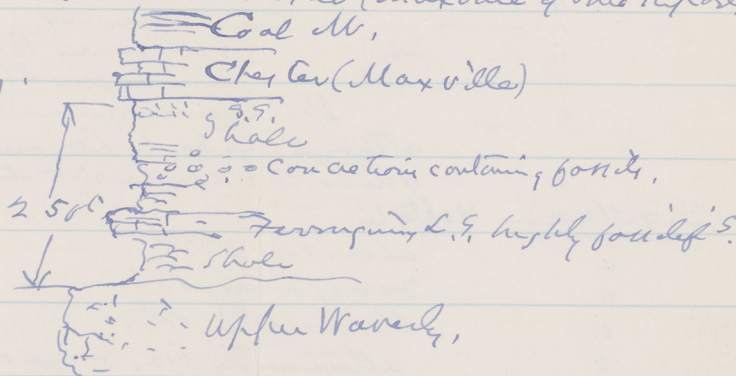 Coal M.
Chester (Maxville)
S.S.
Shale
Concretions containing fossils.
Ferruginous L.S. highly fossilif s.
Shale
Upper Waverly.